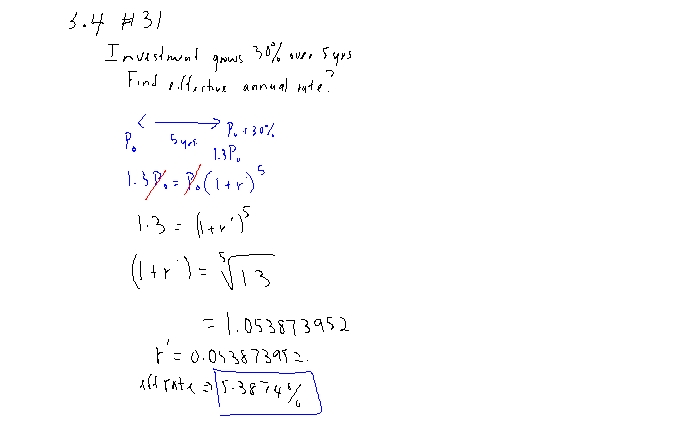 3.4 #31
Investment grows 30% over 5 yrs
Find effective annual rate?
P₀ 5 yrs P₀ + 30%
1.3P₀
1.3P₀ = P₀(1+r')⁵
1.3 = (1+r')⁵
(1+r') = ⁵√13
= 1.053873952
r' = 0.053873952
eff rate ⇒ 5.3874%